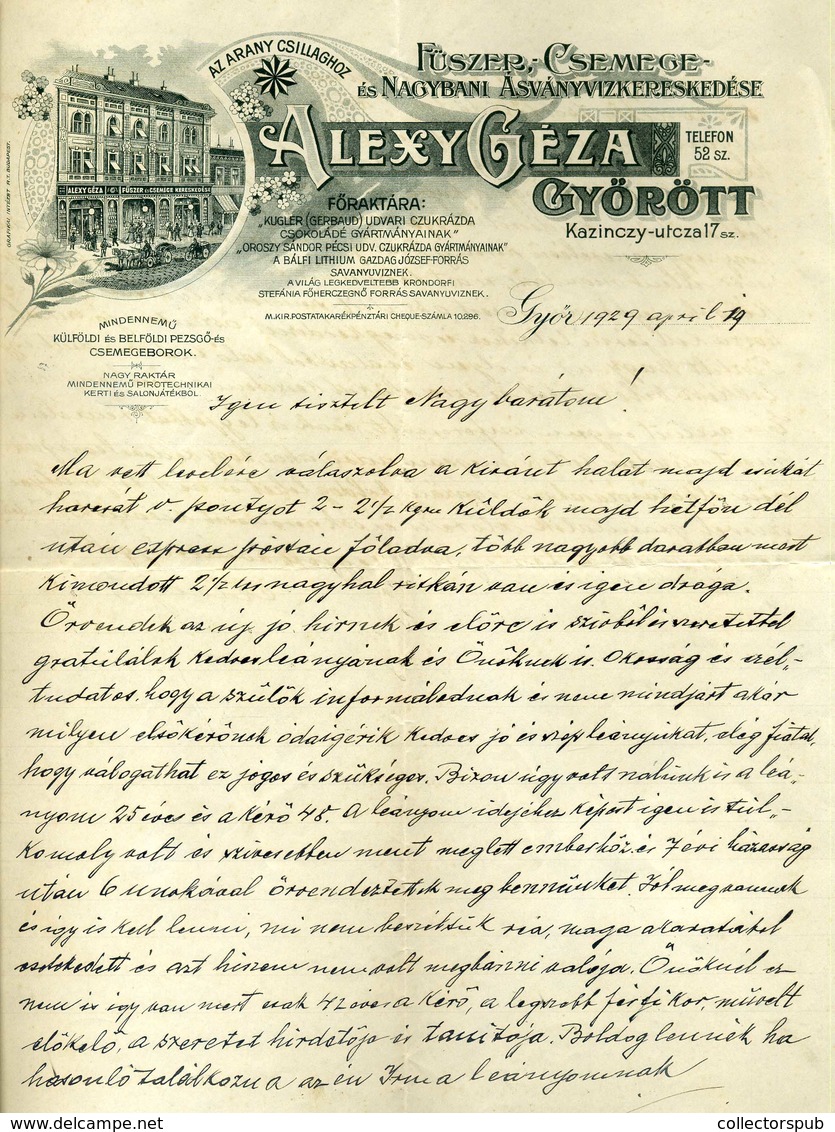 AZ ARANY CSILLAGHOZ
FÜSZER,- CSEMEGE-
ÉS NAGYBANI ÁSVÁNYVIZKERESKEDÉSE
ALEXY GÉZA
TELEFON
52 SZ.
GYŐRÖTT
Kazinczy-utcza 17 sz.
ALEXY GÉZA FÜSZER ÉS CSEMEGE KERESKEDÉSE
GRAFIKAI INTÉZET R.T. BUDAPEST.
FŐRAKTÁRA:
„KUGLER (GERBAUD) UDVARI CZUKRÁZDA
CSOKOLÁDÉ GYÁRTMÁNYAINAK"
„OROSZY SÁNDOR PÉCSI UDV. CZUKRÁZDA GYÁRTMÁNYAINAK"
A BÁLFI LITHIUM GAZDAG JÓZSEF-FORRÁS
SAVANYUVIZNEK.
A VILÁG LEGKEDVELTEBB KRONDORFI
STEFÁNIA FŐHERCZEGNŐ FORRÁS SAVANYUVIZNEK.
M.KIR.POSTATAKARÉKPÉNZTÁRI CHEQUE-SZÁMLA 10.296.
MINDENNEMŰ
KÜLFÖLDI ÉS BELFÖLDI PEZSGŐ-ÉS
CSEMEGEBOROK.
NAGY RAKTÁR
MINDENNEMŰ PIROTECHNIKAI
KERTI ÉS SALONJÁTÉKBOL.
Győr 1929 april 19
Igen tisztelt Nagybarátom!
Ma vett levelére válaszolva a kivánt halat majd csukát
harcsát v. pontyot 2 - 2 1/2 kgr. küldök majd hétfőn dél
után express postán föladva, több nagyobb darabban mert
kimondott 2 1/2 nagy hal ritkán van és igen drága.
Örvendek az új jó hirnek és előre is szivből és szeretettel
gratulálok kedves leányának és Önöknek is. Okosság és czél-
tudatos, hogy a szülők informálodnak és nem mindjárt akár
milyen elsőkérőnek odaigérik kedves jó és szép leányukat, elég fiatal,
hogy válogathat ez jogos és szükséges. Bizon úgy volt nálunk is a leá-
nyom 25 éves és a kérő 48. A leányom idejéhez képest igen is túl-
komoly volt és szivesebben ment meglett emberhöz és 7 évi házasság
után 6 unokával örvendeztettek meg bennünket. Jól megvannak
és így is kell lenni, mi nem beszéltük reá, maga akaratából
cselekedett és azt hiszem nem volt megbánni valója. Önöknél ez
nem is igy van mert csak 42 éves a kérő, a legszebb férfikor, művelt
előkelő, a szeretet hirdetője és tanitója. Boldog lennék ha
hasonló találkozna az én Irma leányomnak
collectorspub